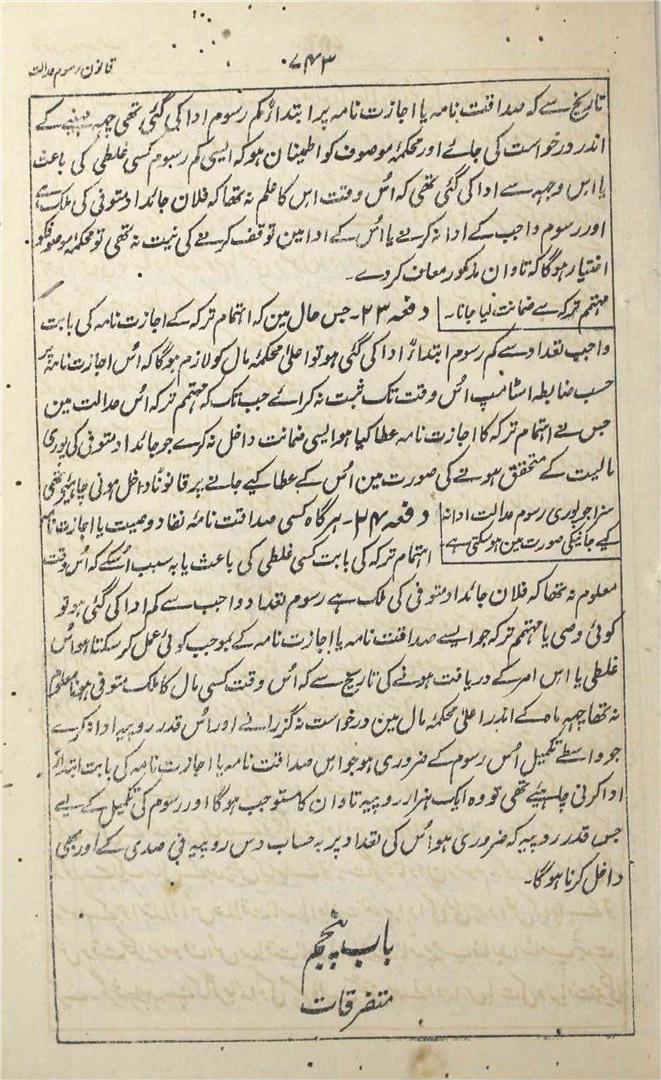 قانون رسوم عدالت
۷۴۳
تاریخ سے کہ صداقت نامہ یا اجازت نامہ پر ابتداءً کم رسوم ادا کی گئی تھی چھہ مہینے کے
اندر درخواست کی جائے اور محکمۂ موصوف کو اطمینان ہو کہ ایسی کم رسوم کسی غلطی کی باعث
یا اس وجہ سے ادا کی گئی تھی کہ اُس وقت اس کا علم نہ تھا کہ فلان جائداد متوفی کی ملک ہے
اور رسوم واجب کے ادا نہ کرنے یا اُس کے ادا مین توقف کرنے کی نیت نہ تھی تو محکمۂ موصوف کو
اختیار ہوگا کہ تاوان مذکور معاف کر دے۔
مہتمم ترکہ سے ضمانت لیا جانا۔
دفعہ ۲۳۔ جس حال مین کہ اہتمام ترکہ کے اجازت نامہ کی بابت
واجب تعداد سے کم رسوم ابتداءً ادا کی گئی ہو تو اعلیٰ محکمۂ مال کو لازم ہوگا کہ اُس اجازت نامہ پر
حسب ضابطہ اسٹامپ اُس وقت تک ثبت نہ کرائے جب تک کہ مہتمم ترکہ اُس عدالت مین
جس نے اہتمام ترکہ کا اجازت نامہ عطا کیا ہو ایسی ضمانت داخل نہ کرے جو جائداد متوفی کی پوری
مالیت کے متحقق ہونے کی صورت مین اُس کے عطا کیے جانے پر قانوناً داخل ہونی چاہیئے تھی
سزا جو پوری رسوم عدالت ادا نہ
کیے جانیکی صورت مین ہو سکتی ہے۔
دفعہ ۲۴۔ ہرگاہ کسی صداقت نامۂ نفاد وصیت یا اجازت نامہ
اہتمام ترکہ کی بابت کسی غلطی کی باعث یا بہ سبب اسکے کہ اُس وقت
معلوم نہ تھا کہ فلان جائداد متوفی کی ملک ہے رسوم تعداد واجب سے کم ادا کی گئی ہو تو
کوئی وصی یا مہتمم ترکہ جو ایسے صداقت نامہ یا اجازت نامہ کے بموجب کوئی عمل کر سکتا ہو اُس
غلطی یا اس امر کے دریافت ہونے کی تاریخ سے کہ اُس وقت کسی مال کا ملک متوفی ہونا معلوم
نہ تھا چھہ ماہ کے اندر اعلیٰ محکمہ مال مین درخواست نہ گزرانے اور اُس قدر روپیہ ادا نہ کرے
جو واسطے تکمیل اُس رسوم کے ضروری ہو جو اس صداقت نامہ یا اجازت نامہ کی بابت ابتداءً
ادا کرنی چاہیئے تھی تو وہ ایک ہزار روپیہ تاوان کا مستوجب ہوگا اور رسوم کی تکمیل کے لیے
جس قدر روپیہ کہ ضروری ہو اُس کی تعداد پر بہ حساب دس روپیہ فی صدی کے اور بھی
داخل کرنا ہوگا۔
باب پنجم
متفرقات